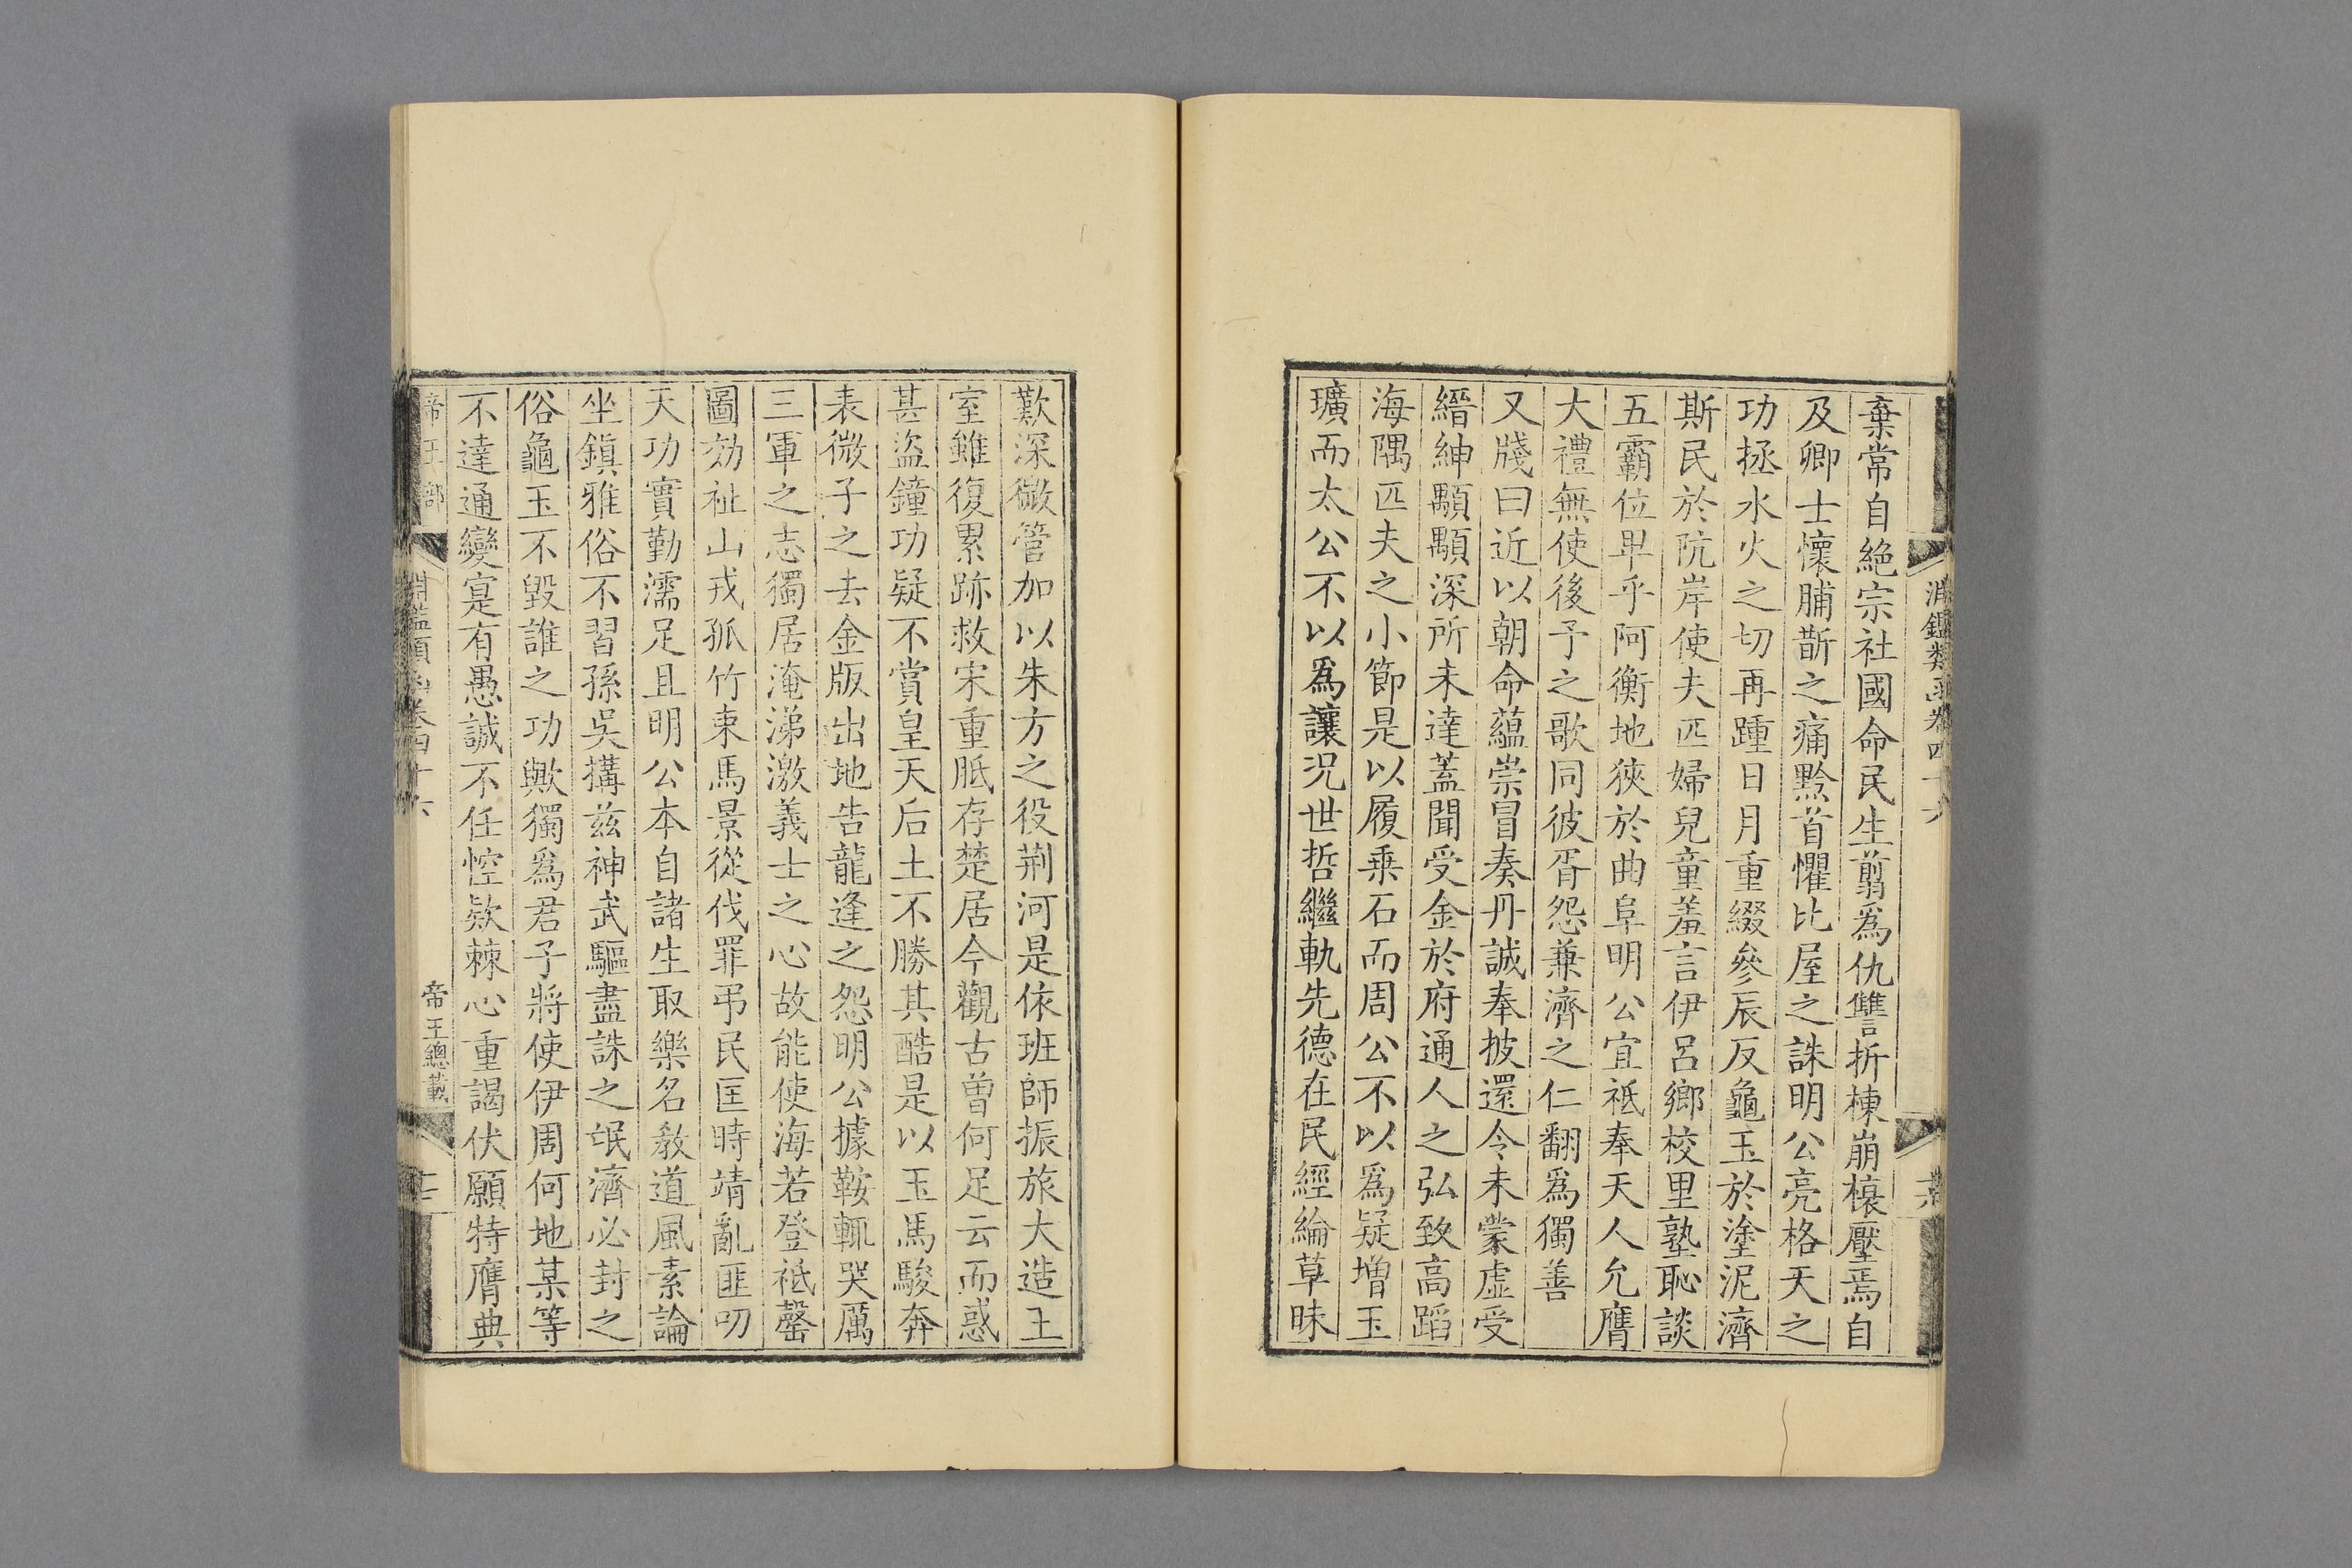 棄常自絶宗社國命民生翦爲仇讐折棟崩榱壓焉自
及卿士懷脯斮之痛黔首懼比屋之誅明公亮格天之
功拯水火之切再踵日月重綴參辰反龜玉於塗泥濟
斯民於阬岸使夫匹婦兒童羞言伊呂鄉校里塾恥談
五霸位卑乎阿衡地狹於曲阜明公宜祗奉天人允膺
大禮無使後予之歌同彼胥怨兼濟之仁翻爲獨善
又牋曰近以朝命蘊崇冒奏丹誠奉披還令未蒙虛受
縉紳顒顒深所未達蓋聞受金於府通人之弘致高蹈
海隅匹夫之小節是以履乗石而周公不以爲疑增玉
璜而太公不以爲讓况世哲繼軌先德在民經綸草昧
歎深微管加以朱方之役荆河是依班師振旅大造王
室雖復累跡救宋重胝存楚居今觀古曽何足云而惑
甚盜鐘功疑不賞皇天后土不勝其酷是以玉馬駿奔
表微子之去金版出地告龍逢之怨明公據鞍輒哭厲
三軍之志獨居淹涕激義士之心故能使海若登祗罄
圖効祉山戎孤竹束馬景從伐罪弔民匡時靖亂匪叨
天功實勤濡足且明公本自諸生取樂名敎道風素論
坐鎮雅俗不習孫吳搆兹神武驅盡誅之氓濟必封之
俗龜玉不毀誰之功歟獨爲君子將使伊周何地某等
不達通變寔有愚誠不任悾欵棘心重謁伏願特膺典
帝王部 淵鑑類函卷四十六 帝王總載